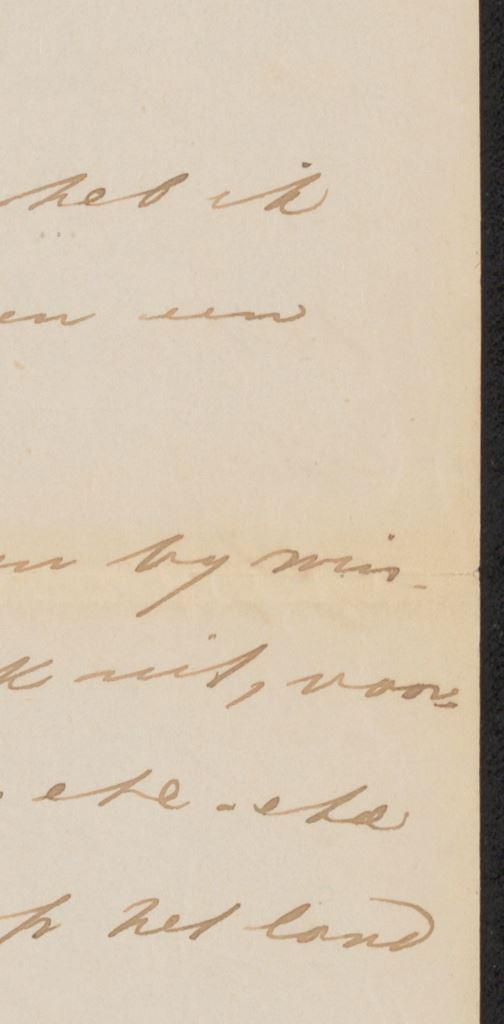 heb ik
en een
en by min-
k uit, voor-
. etc - etc
op het land